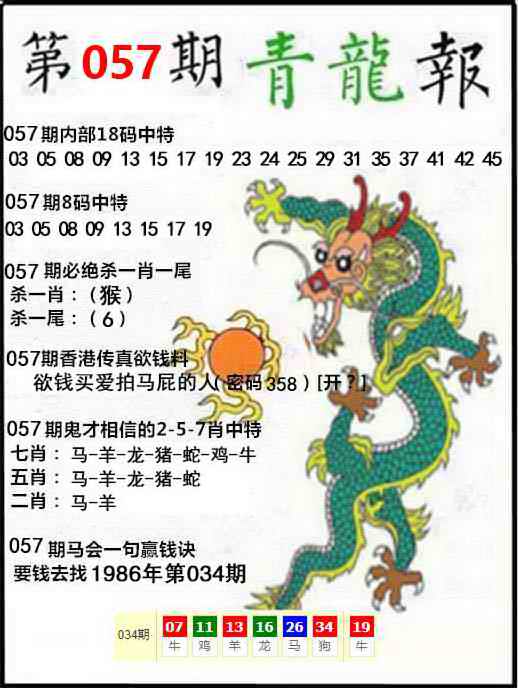 第057期青龍報
057期内部18码中特
03 05 08 09 13 15 17 19 23 24 25 29 31 35 37 41 42 45
057期8码中特
03 05 08 09 13 15 17 19
057 期必绝杀一肖一尾
杀一肖：（猴）
杀一尾：（6）
057期香港传真欲钱料
欲钱买爱拍马屁的人(密码358）[开？]
057期鬼才相信的2-5-7肖中特
七肖：马-羊-龙-猪-蛇-鸡-牛
五肖：马-羊-龙-猪-蛇
二肖：马-羊
057期马会一句赢钱诀
要钱去找1986年第034期
034期 07 11 13 16 26 34 19
牛 鸡 羊 龙 马 狗 牛